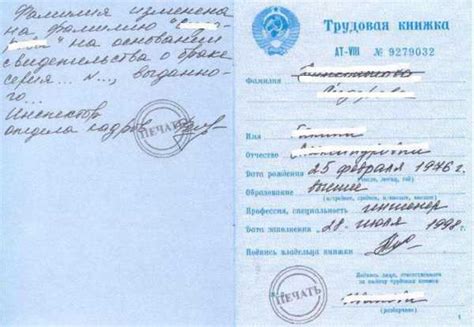 Фамилия изменена
на фамилию "
" на основании
свидетельства о браке
серия... N..., выданно-
го...
Инспектор
отдела кадров
ПЕЧАТЬ
Трудовая книжка
АТ-VIII № 9279032
Фамилия
Имя
Отчество
Дата рождения 25 февраля 1976 г.
(число, месяц, год)
Образование высшее
Профессия, специальность инженер
Дата заполнения 28 июля 1998 г.
Подпись владельца книжки
Подпись лица, ответственного
за выдачу трудовых книжек
ПЕЧАТЬ
(разборчиво)
1